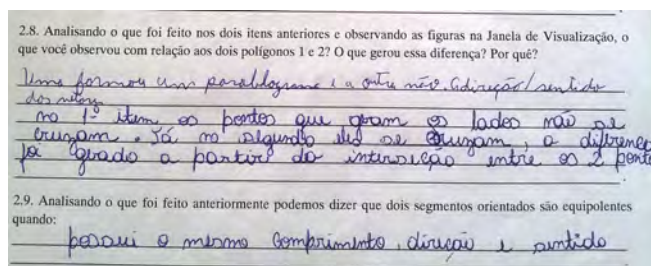 2.8. Analisando o que foi feito nos dois itens anteriores e observando as figuras na Janela de Visualização, o
que você observou com relação aos dois polígonos 1 e 2? O que gerou essa diferença? Por quê?
Uma formou um paralelogramo e a outra não. A direção/sentido
dos
no 1º item os pontos que geram os lados não se
cruzam. Já no segundo eles se cruzam, a diferença
foi gerado a partir da interseção entre os 2 ponto
2.9. Analisando o que foi feito anteriormente podemos dizer que dois segmentos orientados são equipolentes
quando:
possui o mesmo comprimento, direção e sentido